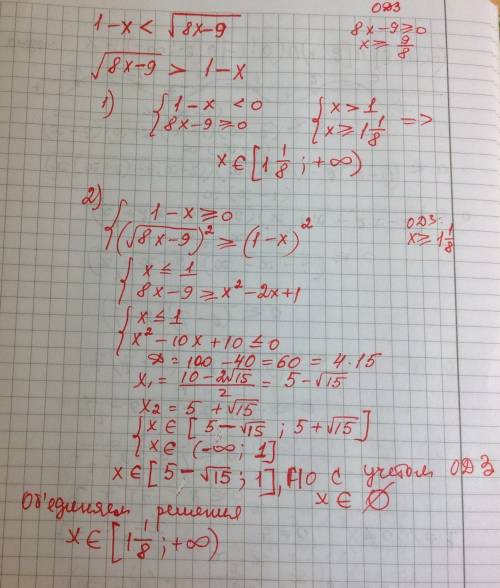 1-x < √(8x-9)
ОДЗ
8x-9≥0
x≥ 9/8
√(8x-9) > 1-x
1) { 1-x <0
8x-9≥0
{ x>1
x≥1 1/8 =>
x∈[1 1/8; +∞)
2) { 1-x≥0
(√(8x-9))² ≥ (1-x)²
ОДЗ:
x≥1 1/8
{ x≤1
8x-9≥x²-2x+1
{ x≤1
x²-10x+10≤0
D=100-40=60=4·15
x₁= (10-2√15)/2 = 5-√15
x₂=5+√15
{ x∈[5-√15; 5+√15]
x∈(-∞; 1]
x∈[5-√15; 1], НО с учетом ОДЗ
x∈∅
Об'единяем решения
x∈[1 1/8; +∞)